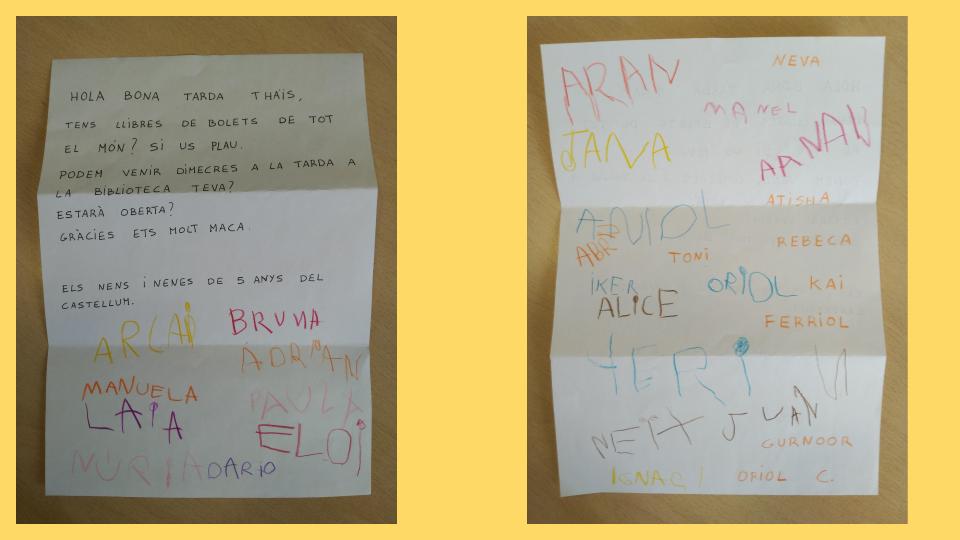 HOLA BONA TARDA THAÏS,
TENS LLIBRES DE BOLETS DE TOT
EL MÓN? SI US PLAU.
PODEM VENIR DIMECRES A LA TARDA A
LA BIBLIOTECA TEVA?
ESTARÀ OBERTA?
GRÀCIES ETS MOLT MACA.
ELS NENS I NENES DE 5 ANYS DEL
CASTELLUM.
BRUNA
ADRIAN
MANUELA
PAULA
LAIA
ELOI
NÚRIA DARIO
ARAN NEVA
MANEL
JANA
ATISHA
ABRIL
TONI REBECA
IKER ORIOL KAI
ALICE
FERRIOL
YERI
JUAN
GURNOOR
IGNACI ORIOL C.